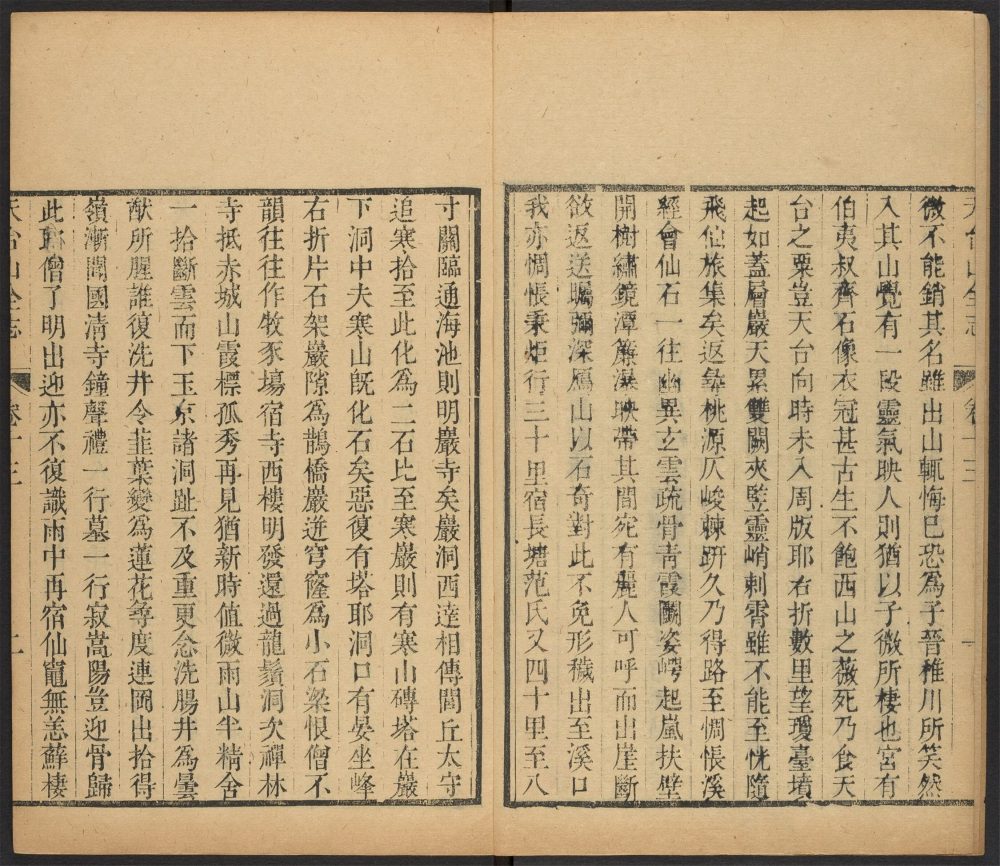 天台山全志 卷十三
微不能銷其名雖出山輒悔巳恐為子晉稚川所笑然
入其山覺有一段靈氣映人則猶以子微所棲也宮有
伯夷叔齊石像衣冠甚古生不飽西山之薇死乃食天
台之粟豈天台向時未入周版耶右折數里望瓊臺墳
起如蓋層巖天累雙闕夾監靈峭刺霄雖不能至恍隨
飛仙旅集矣返尋桃源仄峻棘趼久乃得路至惆悵溪
經會仙石一往幽異玄雲疏骨青霞關姿崿起嵐扶壁
開樹繡鏡潭簾瀑映帶其間宛有麗人可呼而出崖斷
斂返送矚彌深鴈山以石奇對此不免形穢出至溪口
我亦惆悵秉炬行三十里宿長塘范氏又四十里至八
寸關臨通海池則明巖寺矣巖洞西達相傳閭丘太守
追寒拾至此化為二石比至寒巖則有寒山磚塔在巖
下洞中夫寒山旣化石矣惡復有塔耶洞口有晏坐峰
右折片石架巖隙為鵲橋巖逬穹窿為小石梁恨僧不
韻往往作牧豕場宿寺西樓明發還過龍鬚洞次禪林
寺抵赤城山霞標孤秀再見猶新時值微雨山半精舍
一拾斷雲而下玉京諸洞趾不及重更念洗腸井為曇
猷所腥誰復洗井令韮葉變為蓮花等度連岡出拾得
嶺漸聞國清寺鐘聲禮一行墓一行寂嵩陽豈迎骨歸
此耶僧了明出迎亦不復識雨中再宿仙竈無恙蘚棲
天台山全志 卷十三 二